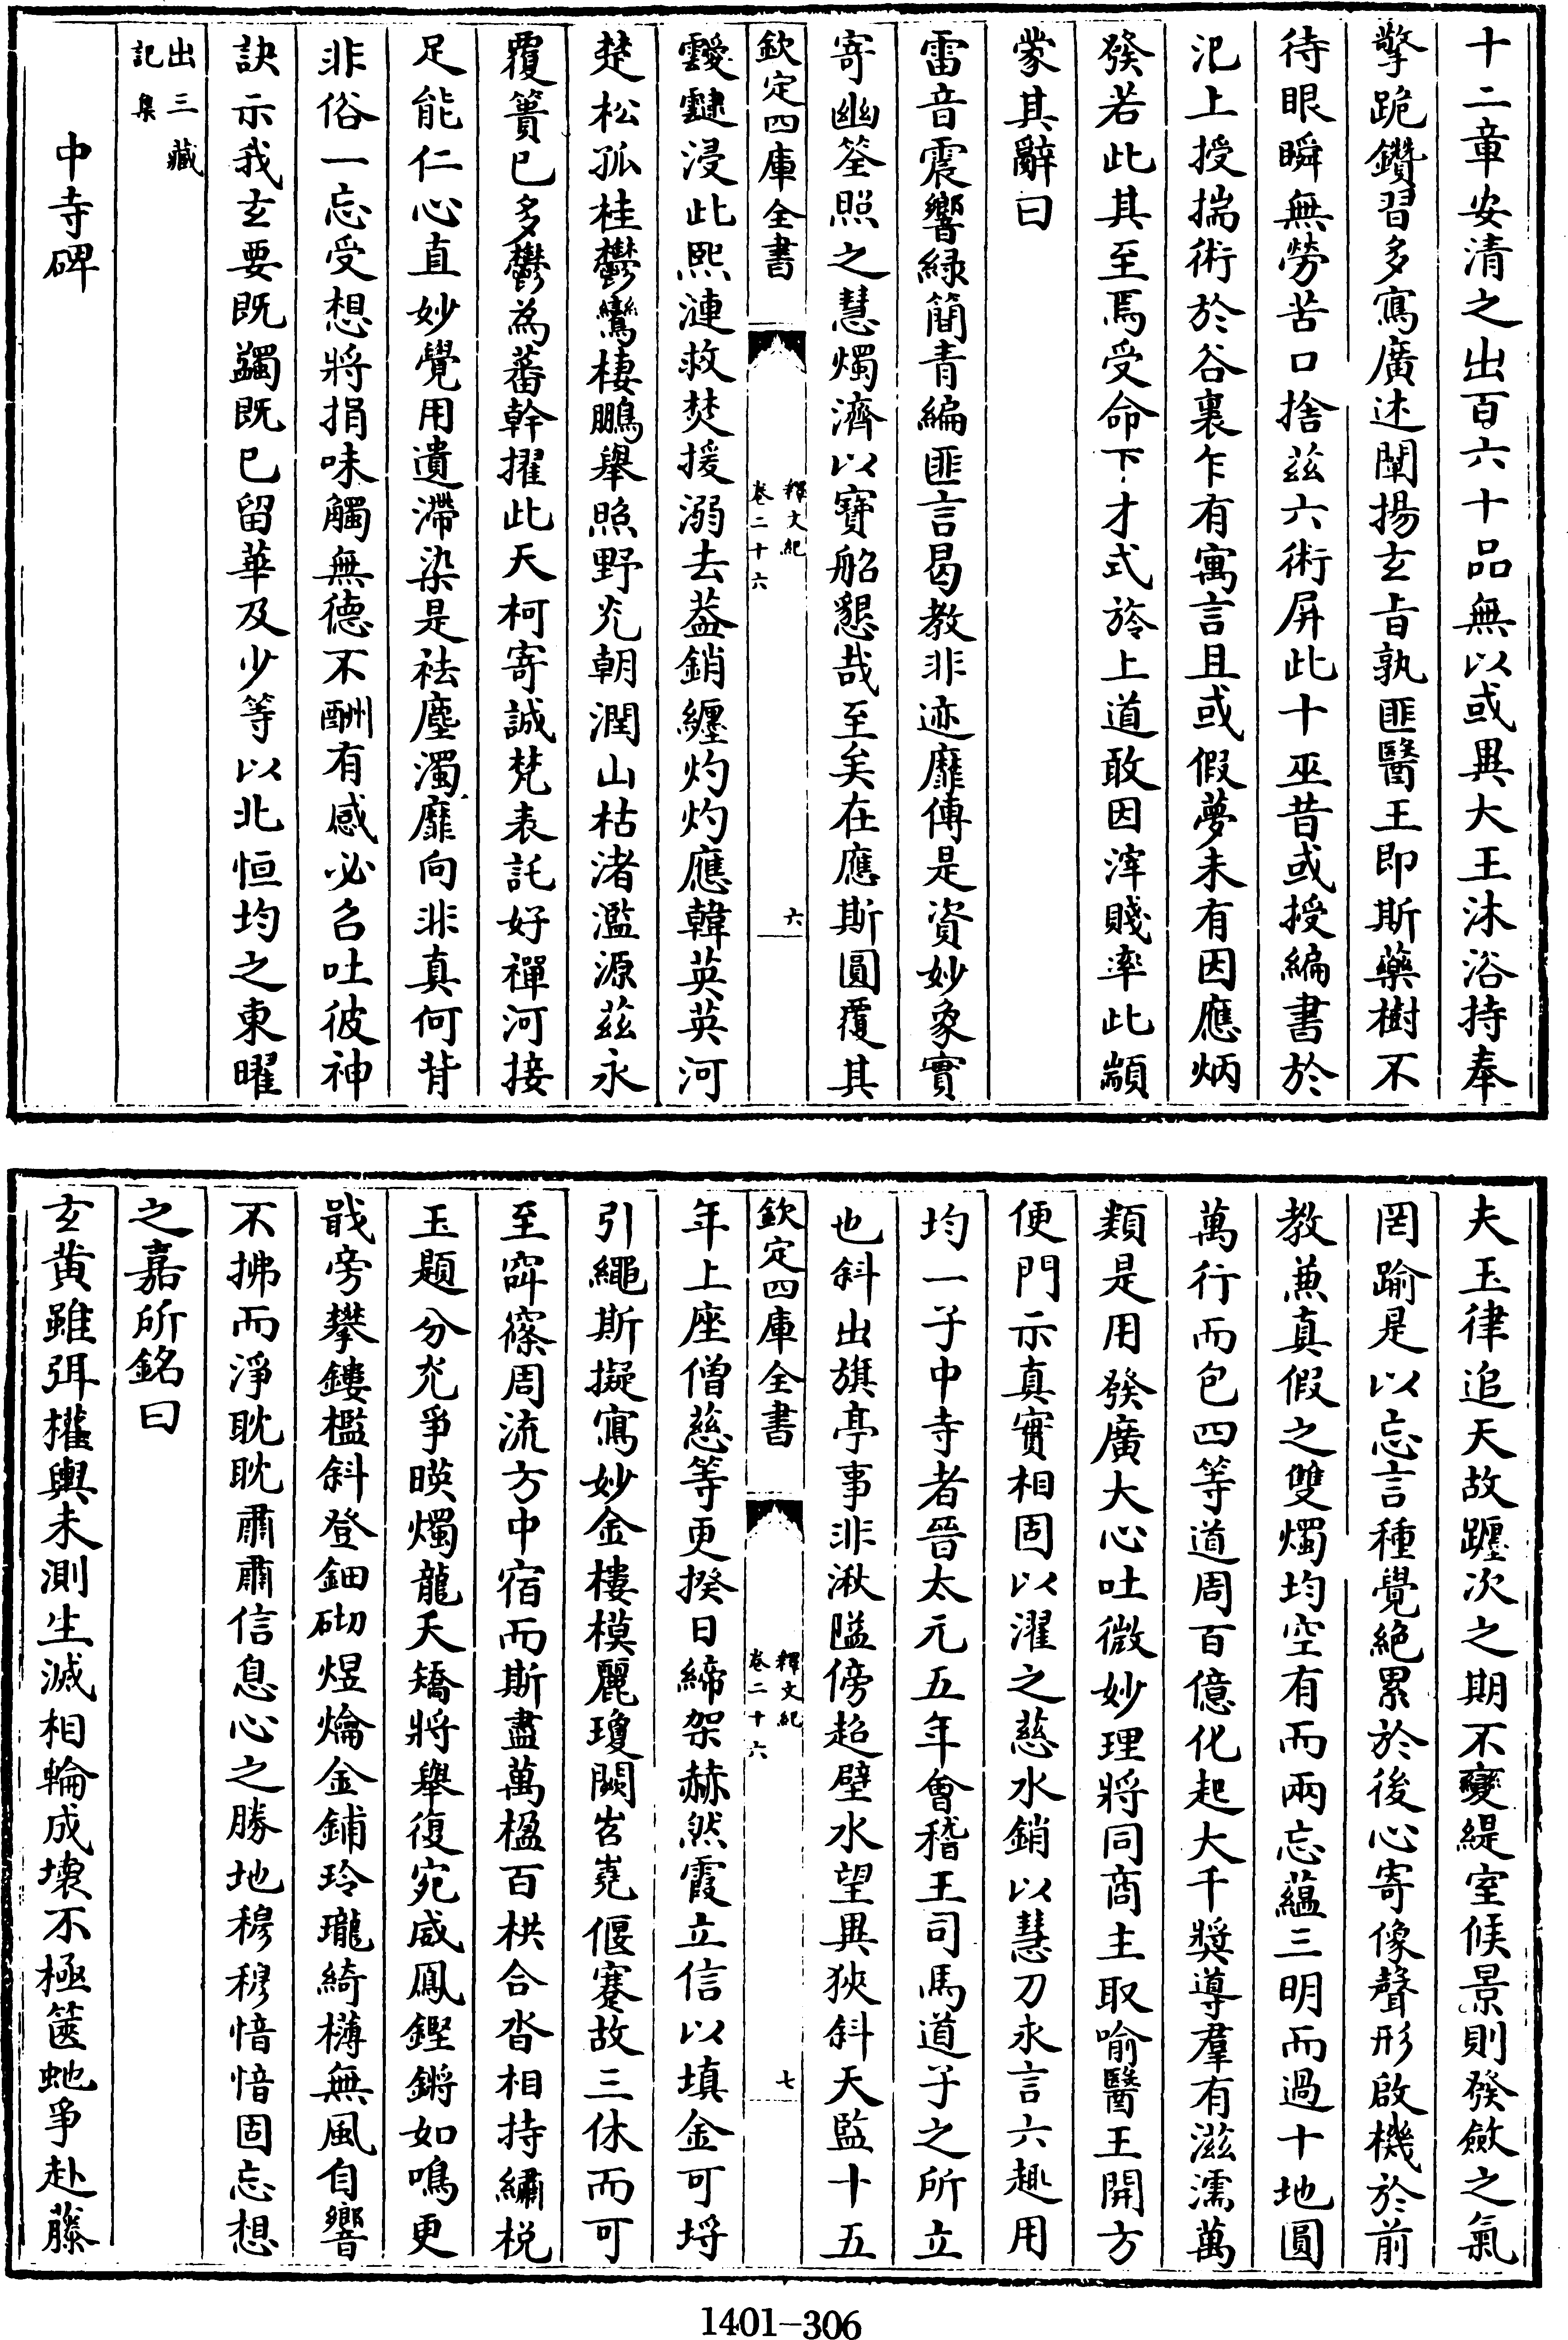 十二章安清之出百六十品無以或異大王沐浴持奉
擎跪鑽習多寫廣述闡揚玄旨孰匪醫王即斯藥樹不
待眼瞬無勞苦口捨兹六術屏此十巫昔或授編書於
汜上授揣術於谷裏乍有寓言且或假夢未有因應炳
發若此其至焉受命下才式旍上道敢因滓賤率此顓
蒙其辭曰
雷音震響緑簡青編匪言曷教非迹靡傳是資妙象實
寄幽筌照之慧燭濟以寶船懇哉至矣在應斯圓覆其
欽定四庫全書
釋文紀
卷二十六
六
靉靆浸此熙漣救焚援溺去葢銷纏灼灼應韓英英河
楚松孤桂鬱鸞棲鵬舉照野光朝潤山枯渚濫源兹永
覆簣已多鬱為蕃幹擢此天柯寄誠梵表託好禪河接
足能仁心直妙覺用遺滯染是祛塵濁靡向非真何背
非俗一忘受想將捐味觸無德不酬有感必召吐彼神
訣示我玄要既蠲既已留華及少等以北恒均之東曜
出三藏
記集
中寺碑
夫玉律追天故躔次之期不變緹室候景則發斂之氣
罔踰是以忘言種覺絶累於後心寄像聲形啟機於前
教兼真假之雙燭均空有而兩忘蘊三明而過十地圓
萬行而包四等道周百億化起大千奬導羣有滋濡萬
類是用發廣大心吐微妙理將同商主取喻醫王開方
便門示真實相固以濯之慈水銷以慧刀永言六趣用
均一子中寺者晉太元五年會稽王司馬道子之所立
也斜出旗亭事非湫隘傍超壁水望異狹斜天監十五
欽定四庫全書
釋文紀
卷二十六
七
年上座僧慈等更揆日締架赫然霞立信以填金可埒
引繩斯擬寫妙金樓模麗瓊闕岧嶤偃蹇故三休而可
至窱窱周流方中宿而斯盡萬楹百栱合沓相持繡梲
玉題分光爭暎燭龍夭矯將舉復宛威鳳鏗鏘如鳴更
戢旁攀鏤檻斜登鈿砌煜爚金鋪玲瓏綺櫋無風自響
不拂而淨耽耽肅肅信息心之勝地穆穆愔愔固忘想
之嘉所銘曰
玄黄雖弭權輿未測生滅相輪成壊不極篋虵爭赴藤
1401-306